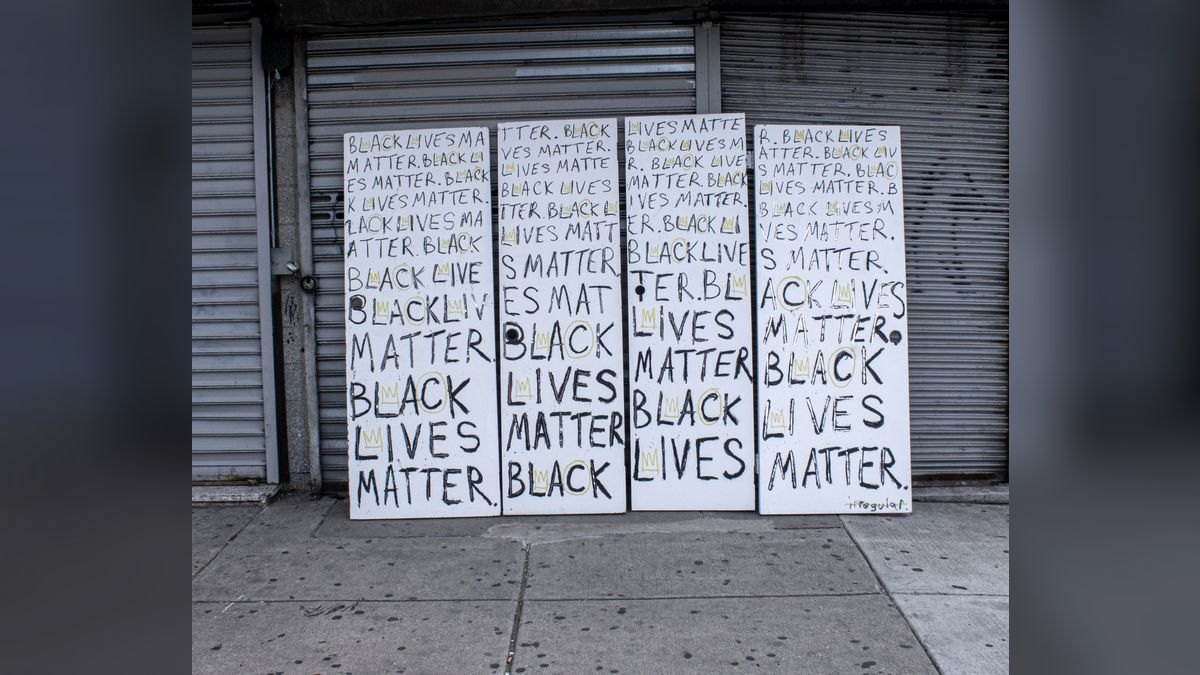 BLACK LIVES MA
MATTER. BLACK LI
ES MATTER. BLACK
K LIVES MATTER.
LACK LIVES MA
ATTER. BLACK
BLACK LIVE
BLACK LIV
MATTER.
BLACK
LIVES
MATTER.
TTER. BLACK
VES MATTER.
LIVES MATTE
BLACK LIVES
TTER. BLACK L
LIVES MATT
S MATTER.
ES MAT
BLACK
LIVES
MATTER
BLACK
LIVES MATTE
BLACK LIVES M
R. BLACK LIVES
MATTER. BLACK
LIVES MATTER.
ER. BLACK LI
BLACK LIVE
TER. BL
LIVES
MATTER
BLACK
LIVES
R. BLACK LIVES
ATTER. BLACK LIV
S MATTER. BLAC
LIVES MATTER. B
BLACK LIVES M
VES MATTER.
S MATTER.
ACK LIVES
MATTER.
BLACK
LIVES
MATTER.
irregular.